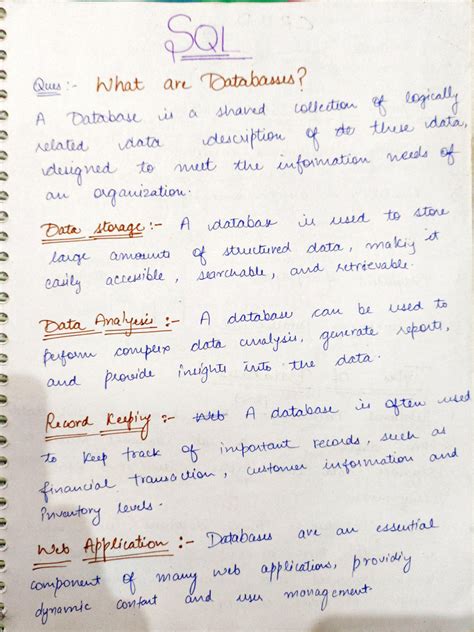 SQL
Ques:- What are Databasses?
A Database is a shared collection of logically
related data description of these data,
designed to meet the information needs of
an organization.
Data storage:- A database is used to store
large amounts of structured data, making it
easily accessible, searchable, and retrievable.
Data Analysis:- A database can be used to
perform complex data analysis, generate reports,
and provide insights into the data.
Record Keeping:- Web A database is often used
to keep track of important records, such as
financial transaction, customer information and
inventory levels.
Web Application:- Databases are an essential
component of many web applications, providing
dynamic content and user management.